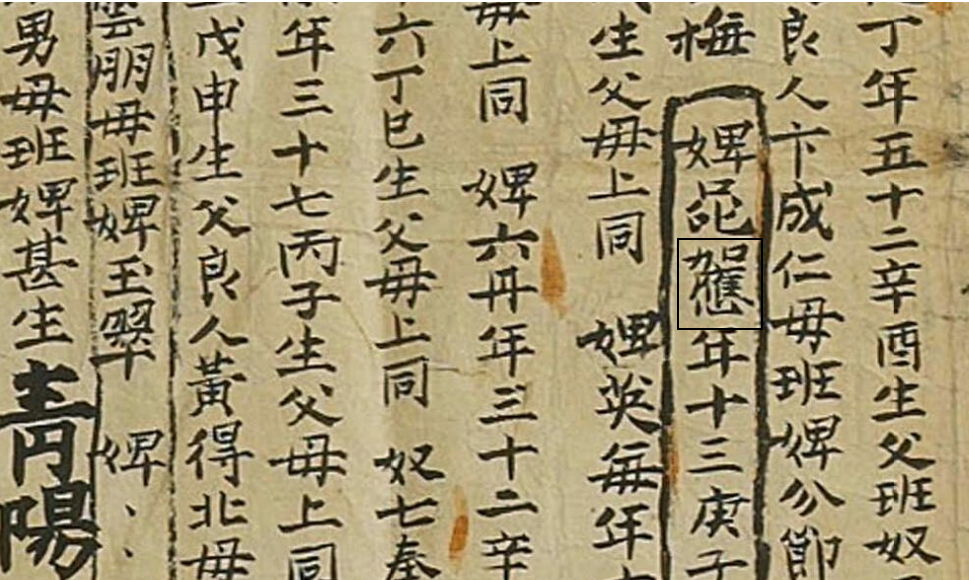 丁年五十二辛酉生父班奴
良人卞成仁母班婢分節
梅 婢 年十三庚子
生父母上同 婢英每年
母上同 婢六丹年三十二辛
六丁巳生父母上同 奴七奉
年三十七丙子生父母上同
戊申生父良人黃得北母
雲朋母班婢玉翠 婢、、
男母班婢甚生靑陽